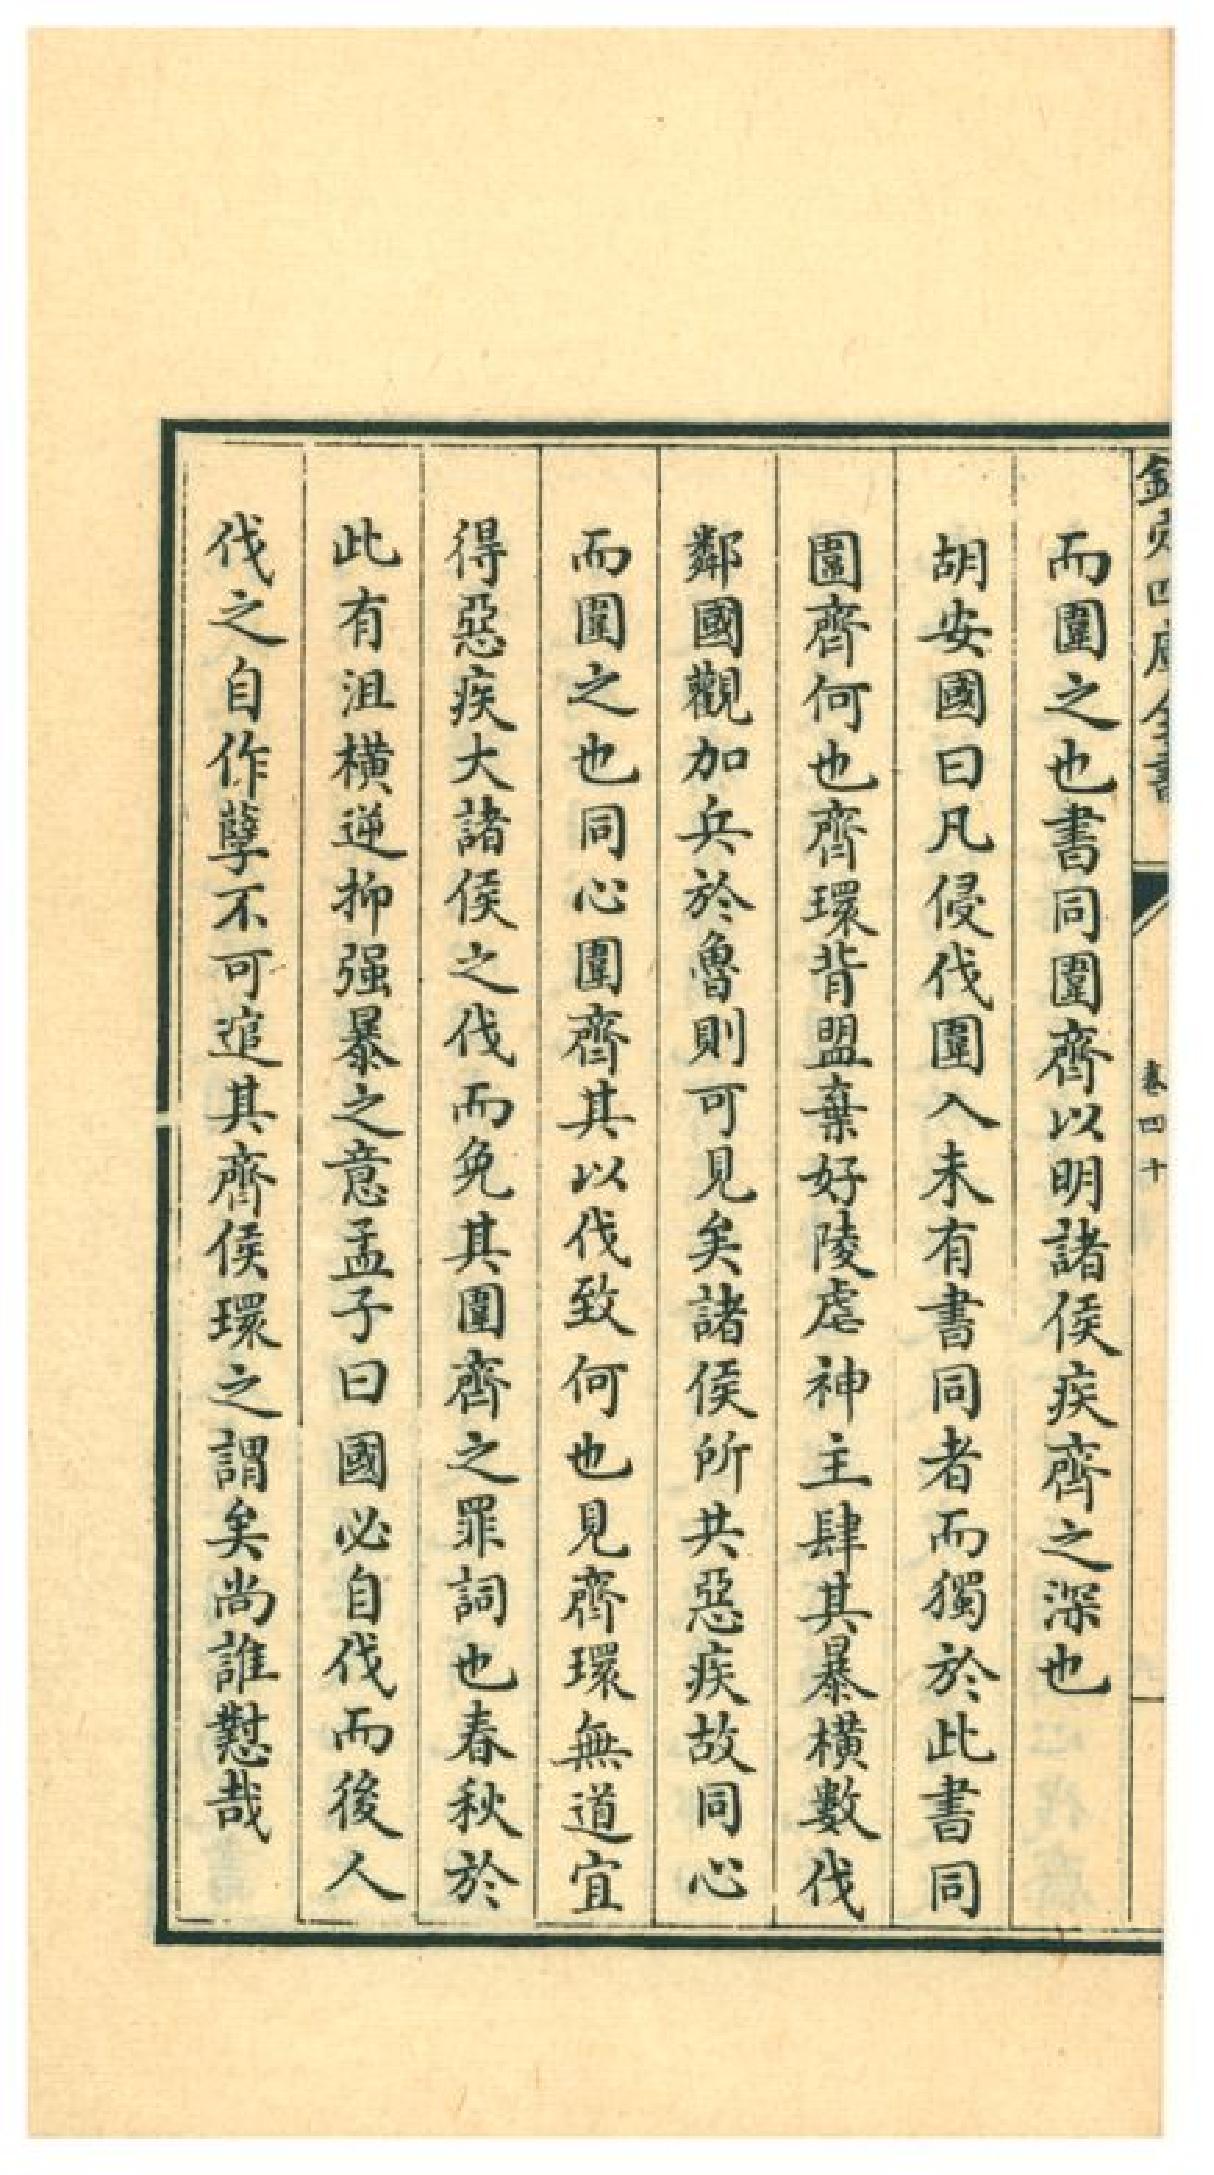 欽定四庫全書
卷四十
而圍之也書同圍齊以明諸侯疾齊之深也
胡安國曰凡侵伐圍入未有書同者而獨於此書同
圍齊何也齊環背盟棄好陵虐神主肆其暴橫數伐
鄰國觀加兵於魯則可見矣諸侯所共惡疾故同心
而圍之也同心圍齊其以伐致何也見齊環無道宜
得惡疾大諸侯之伐而免其圍齊之罪詞也春秋於
此有沮橫逆抑强暴之意孟子曰國必自伐而後人
伐之自作孽不可逭其齊侯環之謂矣尚誰懟哉